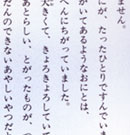 ません。
にが、たったひとりですんでいま
がいてあるようなおにとは、
へんにちがっていました。
大きくて、きょろきょろしていて
あとらしい、とがったものが、つ
だんのできないあやしいやつだと